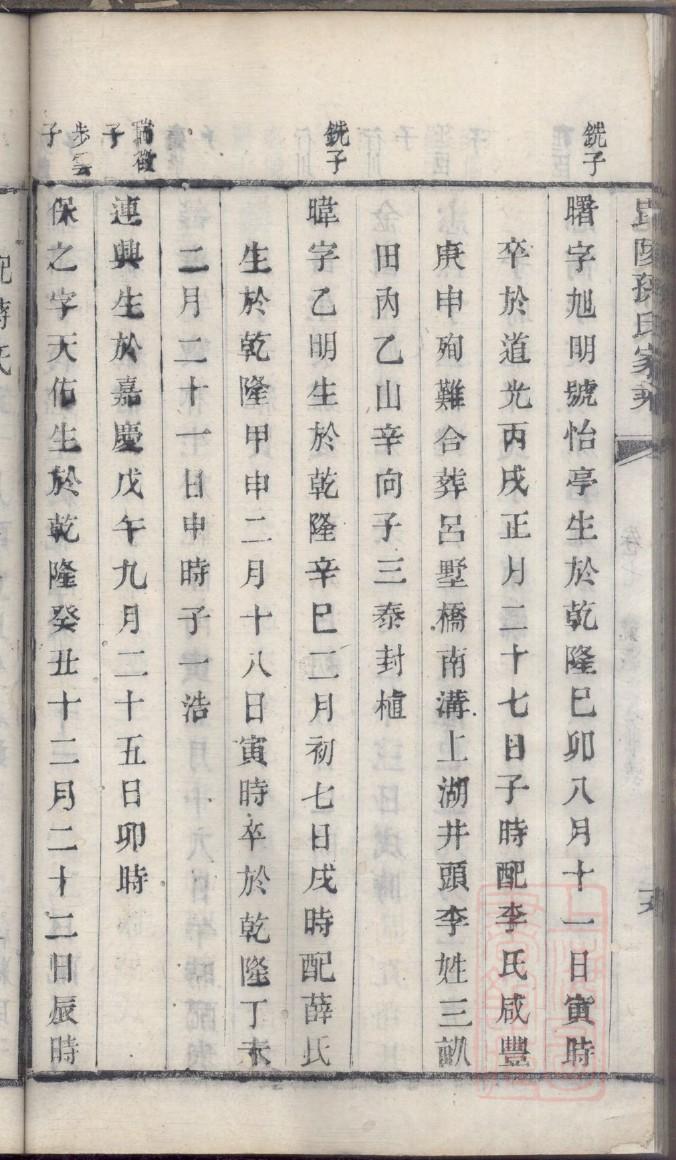 毘陵孫氏家乘
銑子
曙字旭明號怡亭生於乾隆己卯八月十一日寅時
卒於道光丙戌正月二十七日子時配李氏咸豐
庚申殉難合葬呂墅橋南溝上湖井頭李姓三畝
田內乙山辛向子三泰封植
銑子
暐字乙明生於乾隆辛巳三月初七日戌時配薛氏
生於乾隆甲申二月十八日寅時卒於乾隆丁未
二月二十一日申時子一浩
瑞徵子
連興生於嘉慶戊午九月二十五日卯時
步雲子
保之字天佑生於乾隆癸丑十二月二十三日辰時